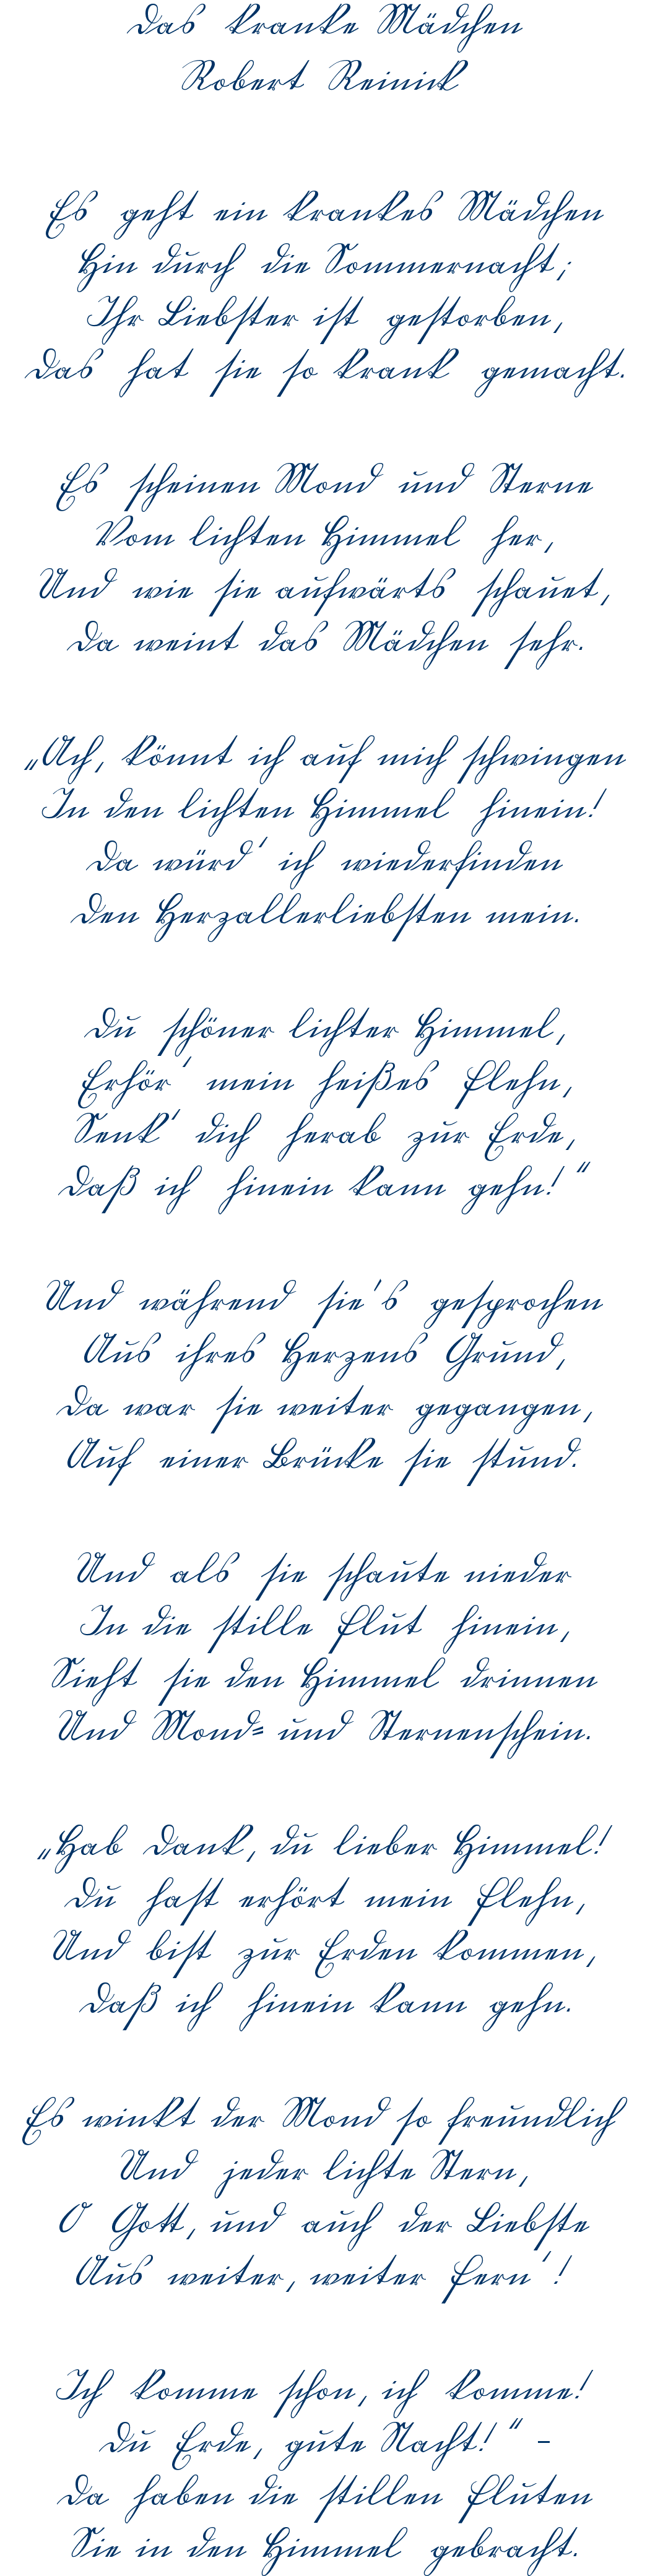 Das kranke Mädchen
Robert Reinick
Es geht ein krankes Mädchen
Hin durch die Sommernacht;
Ihr Liebster ist gestorben,
Das hat sie so krank gemacht.
Es scheinen Mond und Sterne
Vom lichten Himmel her,
Und wie sie aufwärts schauet,
Da weint das Mädchen sehr.
„Ach, könnt ich auf mich schwingen
In den lichten Himmel hinein!
Da würd' ich wiederfinden
Den Herzallerliebsten mein.
Du schöner lichter Himmel,
Erhör' mein heißes Flehn,
Senk' dich herab zur Erde,
Daß ich hinein kann gehn!"
Und während sie's gesprochen
Aus ihres Herzens Grund,
Da war sie weiter gegangen,
Auf einer Brücke sie stund.
Und als sie schaute nieder
In die stille Flut hinein,
Sieht sie den Himmel drinnen
Und Mond- und Sternenschein.
„Hab Dank, du lieber Himmel!
Du hast erhört mein Flehn,
Und bist zur Erden kommen,
Daß ich hinein kann gehn.
Es winkt der Mond so freundlich
Und jeder lichte Stern,
O Gott, und auch der Liebste
Aus weiter, weiter Fern'!
Ich komme schon, ich komme!
Du Erde, gute Nacht!" –
Da haben die stillen Fluten
Sie in den Himmel gebracht.